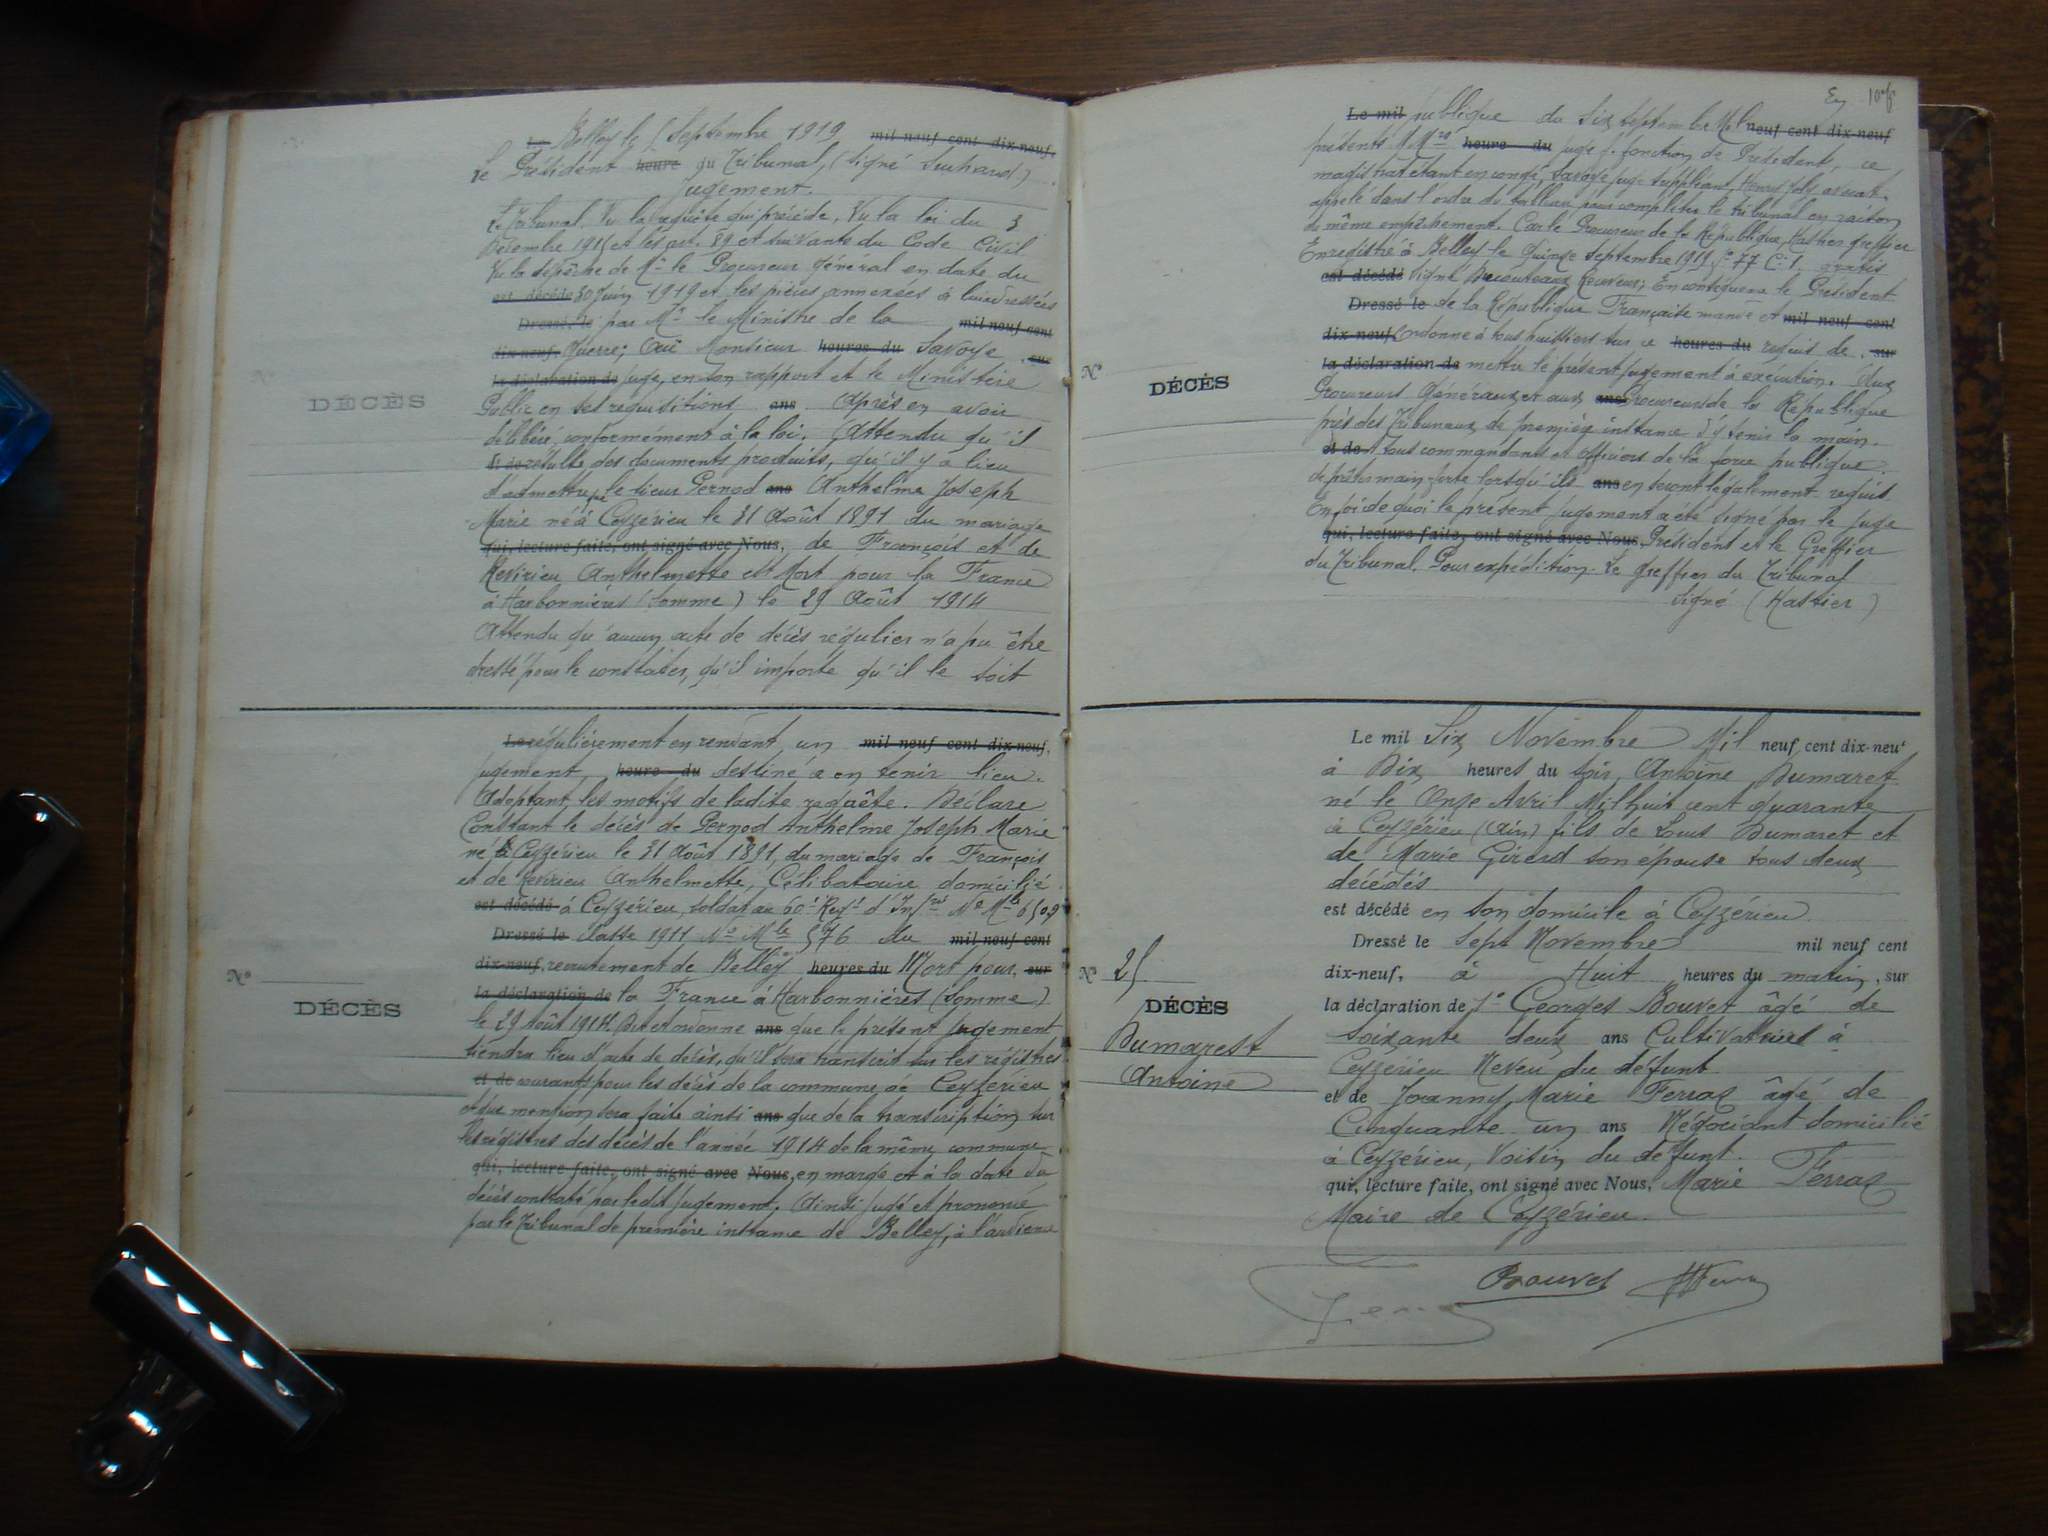 Le Belley le 5 septembre 1919 mil neuf cent dix-neuf,
le Président heure du Tribunal, (signé
Jugement.
Le Tribunal. Vu la requête qui précède, Vu la loi du 3
Décembre 1915 et les art. 89 et suivants du Code Civil
Vu la dépêche de Mr le Procureur Général en date du
est décédé 30 Juin 1919 et les pièces annexées à lui adressées
Dressé le par Mr le Ministre de la mil neuf cent
dix-neuf, Guerre; Ouï Monsieur heures du Savoye, sur
la déclaration de juge, en son rapport et le Ministère
Public en ses réquisitions ans Après en avoir
délibéré, conformément à la loi. Attendu qu'il
et de résulte des documents produits, qu'il y a lieu
d'admettre que le sieur Pernod ans Anthelme Joseph
Marie né à Ceyzérieu le 31 Août 1891 du mariage
qui, lecture faite, ont signé avec Nous, de François et de
Revirieu Anthelmette est Mort pour la France
à Harbonnières (Somme) le 29 Août 1914
Attendu qu'aucun acte de décès régulier n'a pu être
dressé pour le constater, qu'il importe qu'il le soit
N°
DÉCÈS
Le régulièrement en rendant un mil neuf cent dix-neuf,
jugement, heure du destiné à en tenir lieu.
Adoptant les motifs de ladite requête. Déclare
Constant le décès de Pernod Anthelme Joseph Marie
né à Ceyzérieu le 31 Août 1891, du mariage de François
et de Revirieu Anthelmette, Célibataire domicilié
est décédé à Ceyzérieu, soldat au 60e Regt d'Infrie No Mle 6509
Dressé le classe 1911 No Mle 576 du mil neuf cent
dix-neuf, recrutement de Belley heures du Mort pour, sur
la déclaration de la France à Harbonnières (Somme)
le 29 Août 1914. Dit et ordonne ans que le présent jugement
tiendra lieu d'acte de décès, qu'il sera transcrit sur les régistres
et de courants pour les décès de la commune de Ceyzérieu
et que mention sera faite ainsi ans que de la transcription sur
les régistres des décès de l'année 1914 de la même commune
qui, lecture faite, ont signé avec Nous, en marge et à la date du
décès constaté par ledit jugement. Ainsi jugé et prononcé
par le Tribunal de première instance de Belley, à l'audience
N°
DÉCÈS
Le mil publique du six septembre Mil neuf cent dix-neuf
présents M Mrs heure du juge f. fonction de Président, ce
magistrat étant en congé, Savoye juge suppléant, Henry Joly avocat
appelé dans l'ordre du tableau pour compléter le tribunal en raison
du même empêchement. Car le Procureur de la République, Hastier greffier
Enregistré à Belley le Quinze septembre 1919 fo 77 C. 1. gratis
est décédé signé Receveur; En conséquence le Président
Dressé le de la République Française mande et mil neuf cent
dix-neuf, ordonne à tous huissiers sur ce heures du requis de, sur
la déclaration de mettre le présent jugement à exécution. Aux
Procureurs Généraux et aux ans Procureurs de la République
près des Tribunaux de première instance d'y tenir la main.
et de A tous commandants et Officiers de la force publique
de prêter main-forte lorsqu'ils ans en seront légalement requis.
En foi de quoi le présent jugement a été signé par le Juge
qui, lecture faite, ont signé avec Nous, Président et le Greffier
du Tribunal. Pour expédition. Le greffier du Tribunal
signé (Hastier)
N°
DÉCÈS
Le mil Six Novembre Mil neuf cent dix-neuf
à Dix heures du soir, Antoine Dumarest
né le Onze Avril Mil huit cent quarante
à Ceyzérieu (Ain) fils de Louis Dumarest et
de Marie Girerd son épouse tous deux
décédés
est décédé en son domicile à Ceyzérieu
Dressé le Sept Novembre mil neuf cent
dix-neuf, à Huit heures du matin, sur
la déclaration de 1° Georges Bouvet âgé de
Soixante deux ans Cultivateur à
Ceyzérieu Neveu du défunt
et de Joanny Marie Ferraz âgé de
Cinquante un ans Négociant domicilié
à Ceyzérieu, Voisin du défunt.
qui, lecture faite, ont signé avec Nous, Marie Ferraz
Maire de Ceyzérieu.
N° 25
DÉCÈS
Dumarest
Antoine
Bouvet